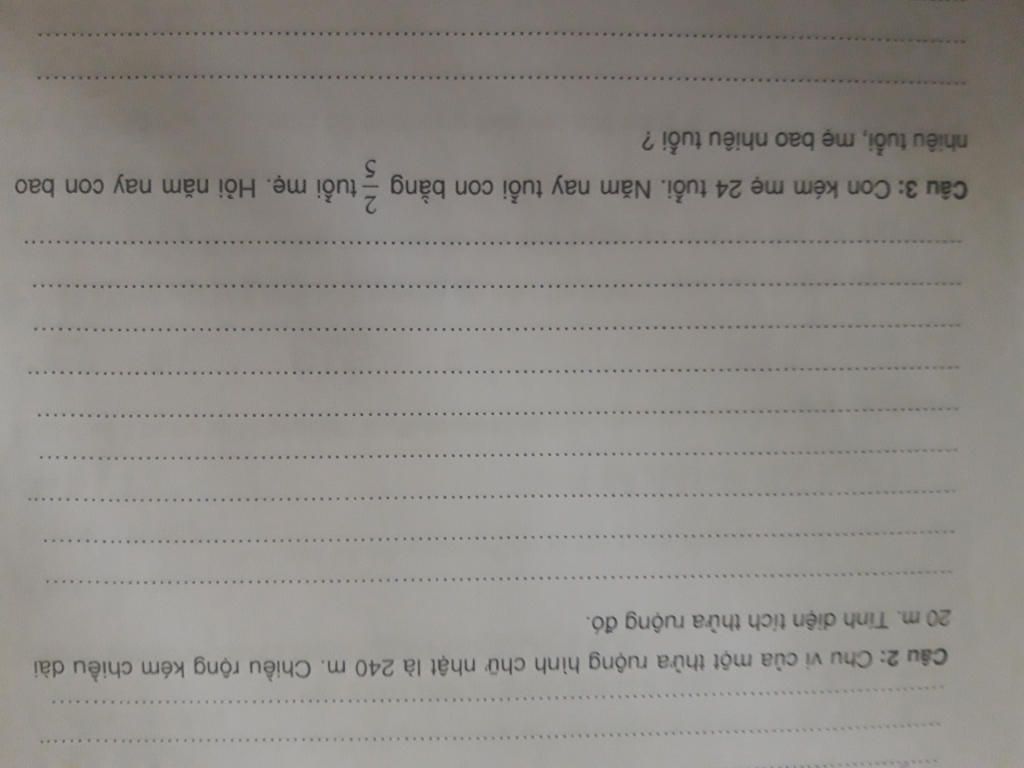 Câu 2: Chu vi của một thửa ruộng hình chữ nhật là 240 m. Chiều rộng kém chiều dài
20 m. Tính diện tích thửa ruộng đó.
Câu 3: Con kém mẹ 24 tuổi. Năm nay tuổi con bằng 2/5 tuổi mẹ. Hỏi năm nay con bao
nhiêu tuổi, mẹ bao nhiêu tuổi ?